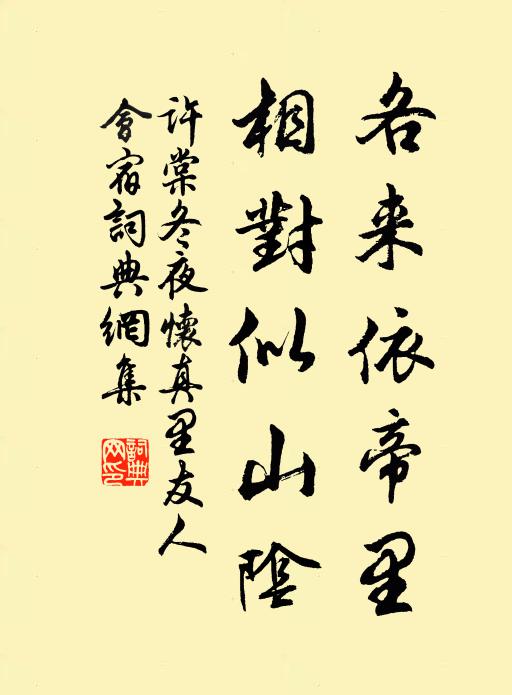 各来依帝里
相對似山陰
許棠冬夜懷真里友人
會宿詞典網集
詞典网印